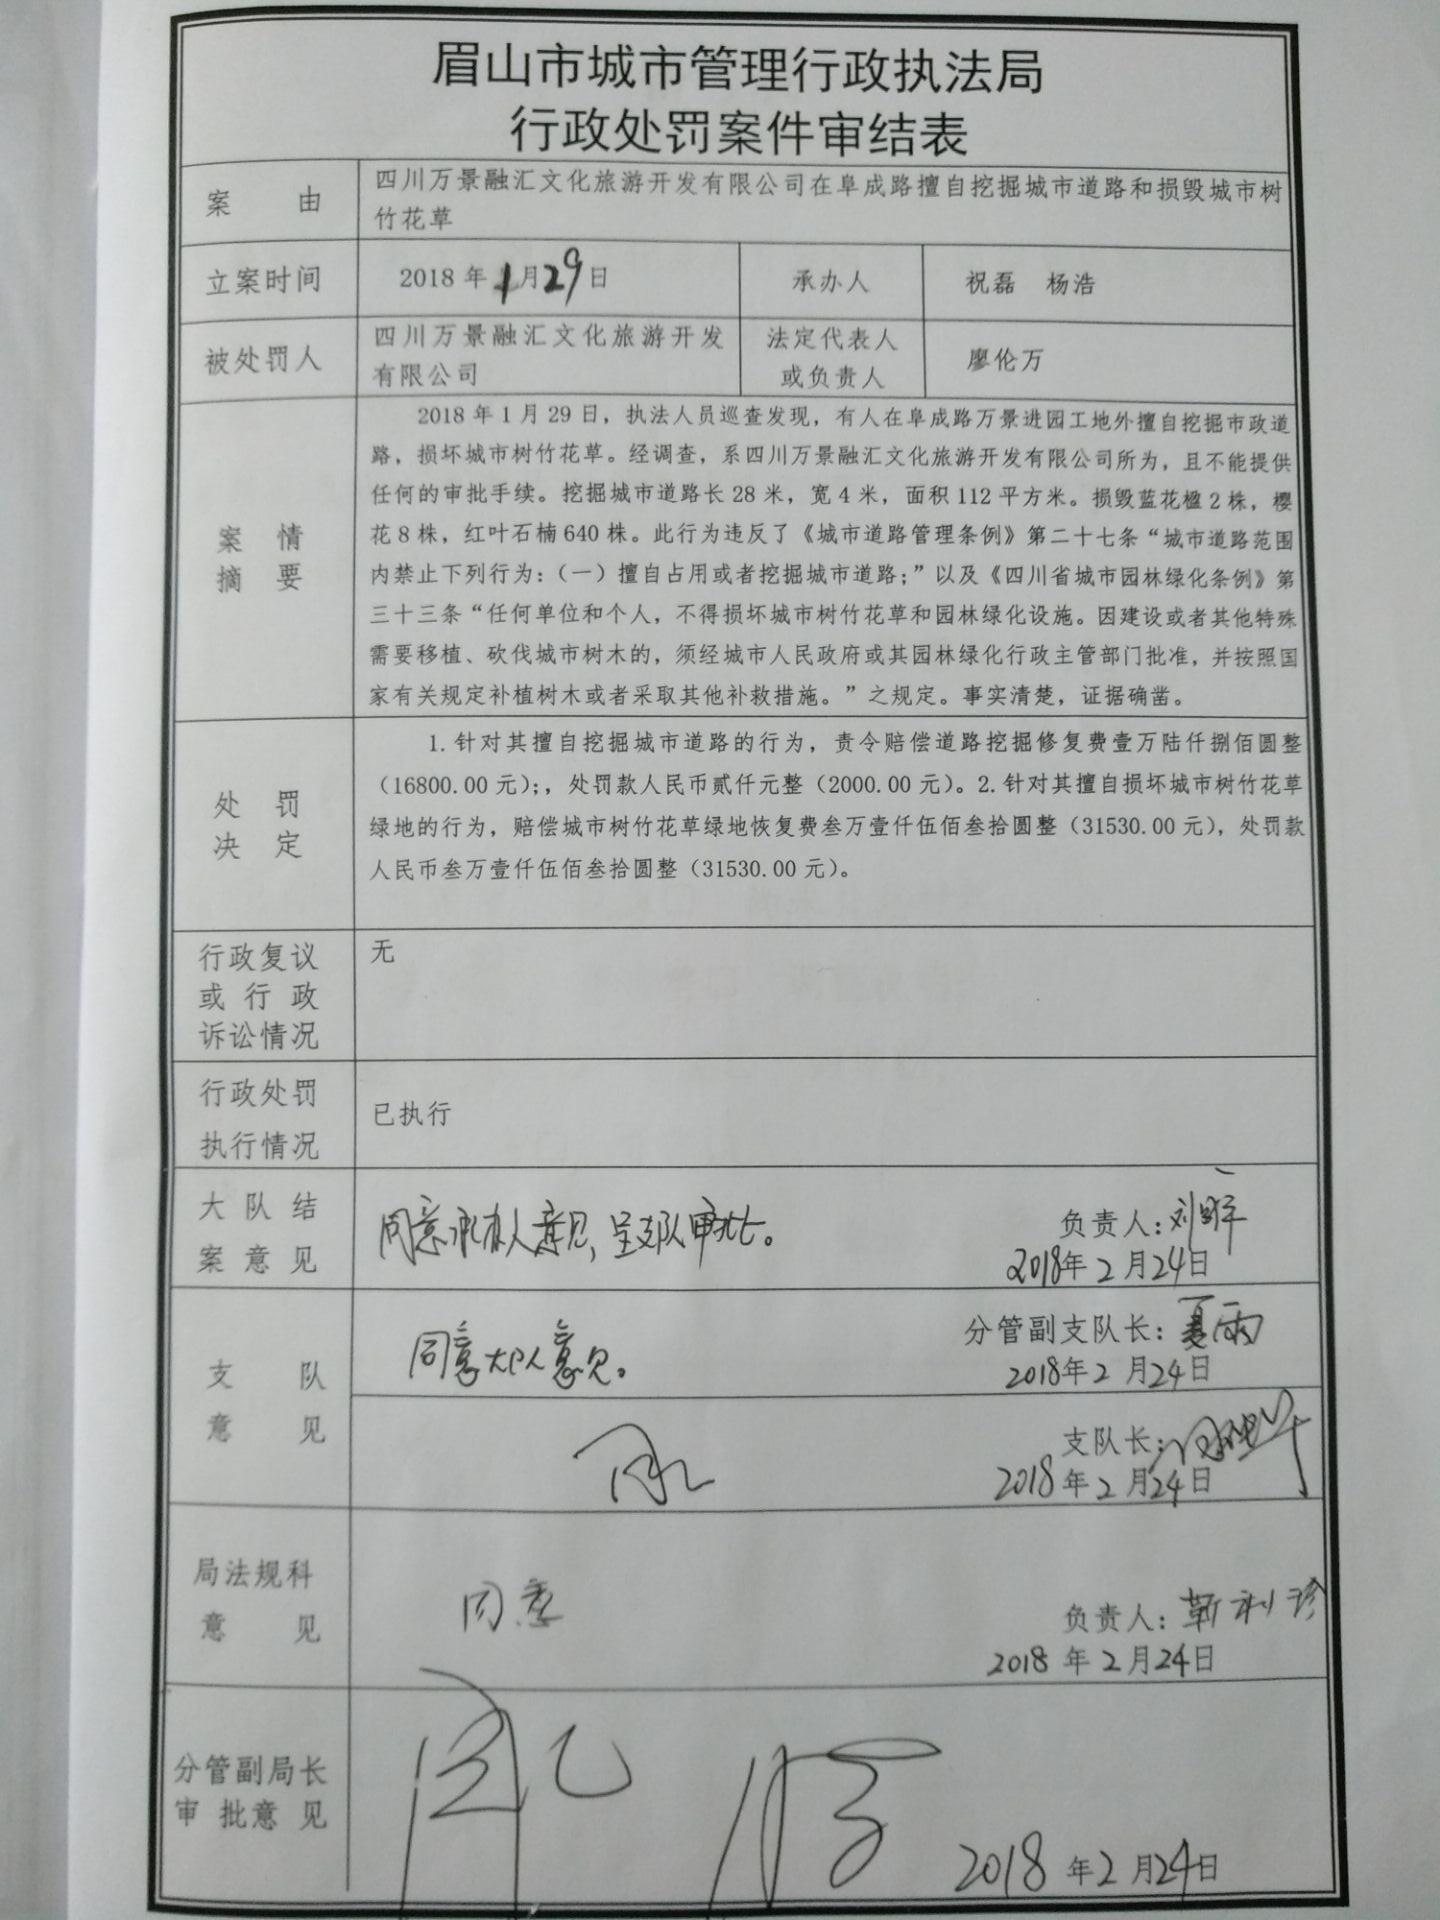 眉山市城市管理行政执法局
行政处罚案件审结表
案 由
四川万景融汇文化旅游开发有限公司在阜成路擅自挖掘城市道路和损毁城市树
竹花草
立案时间
2018 年 1 月 29 日
承办人
祝磊 杨浩
被处罚人
四川万景融汇文化旅游开发
有限公司
法定代表人
或负责人
廖伦万
案 情
摘 要
2018 年 1 月 29 日，执法人员巡查发现，有人在阜成路万景进园工地外擅自挖掘市政道
路，损坏城市树竹花草。经调查，系四川万景融汇文化旅游开发有限公司所为，且不能提供
任何的审批手续。挖掘城市道路长 28 米，宽 4 米，面积 112 平方米。损毁蓝花楹 2 株，樱
花 8 株，红叶石楠 640 株。此行为违反了《城市道路管理条例》第二十七条“城市道路范围
内禁止下列行为：（一）擅自占用或者挖掘城市道路；”以及《四川省城市园林绿化条例》第
三十三条“任何单位和个人，不得损坏城市树竹花草和园林绿化设施。因建设或者其他特殊
需要移植、砍伐城市树木的，须经城市人民政府或其园林绿化行政主管部门批准，并按照国
家有关规定补植树木或者采取其他补救措施。”之规定。事实清楚，证据确凿。
处 罚
决 定
1. 针对其擅自挖掘城市道路的行为，责令赔偿道路挖掘修复费壹万陆仟捌佰圆整
（16800.00 元）；，处罚款人民币贰仟元整（2000.00 元）。2. 针对其擅自损坏城市树竹花草
绿地的行为，赔偿城市树竹花草绿地恢复费叁万壹仟伍佰叁拾圆整（31530.00 元），处罚款
人民币叁万壹仟伍佰叁拾圆整（31530.00 元）。
行政复议
或 行 政
诉讼情况
无
行政处罚
执行情况
已执行
大 队 结
案 意 见
同意承办人意见，呈支队审批。
负责人：
2018年 2 月 24日
支 队
意 见
同意大队意见。
分管副支队长：夏雨
2018年 2 月 24日
支队长：
2018 年 2 月 24日
局法规科
意 见
同意
负责人：靳利珍
2018 年 2 月 24日
分管副局长
审 批意 见
2018 年 2 月 24日